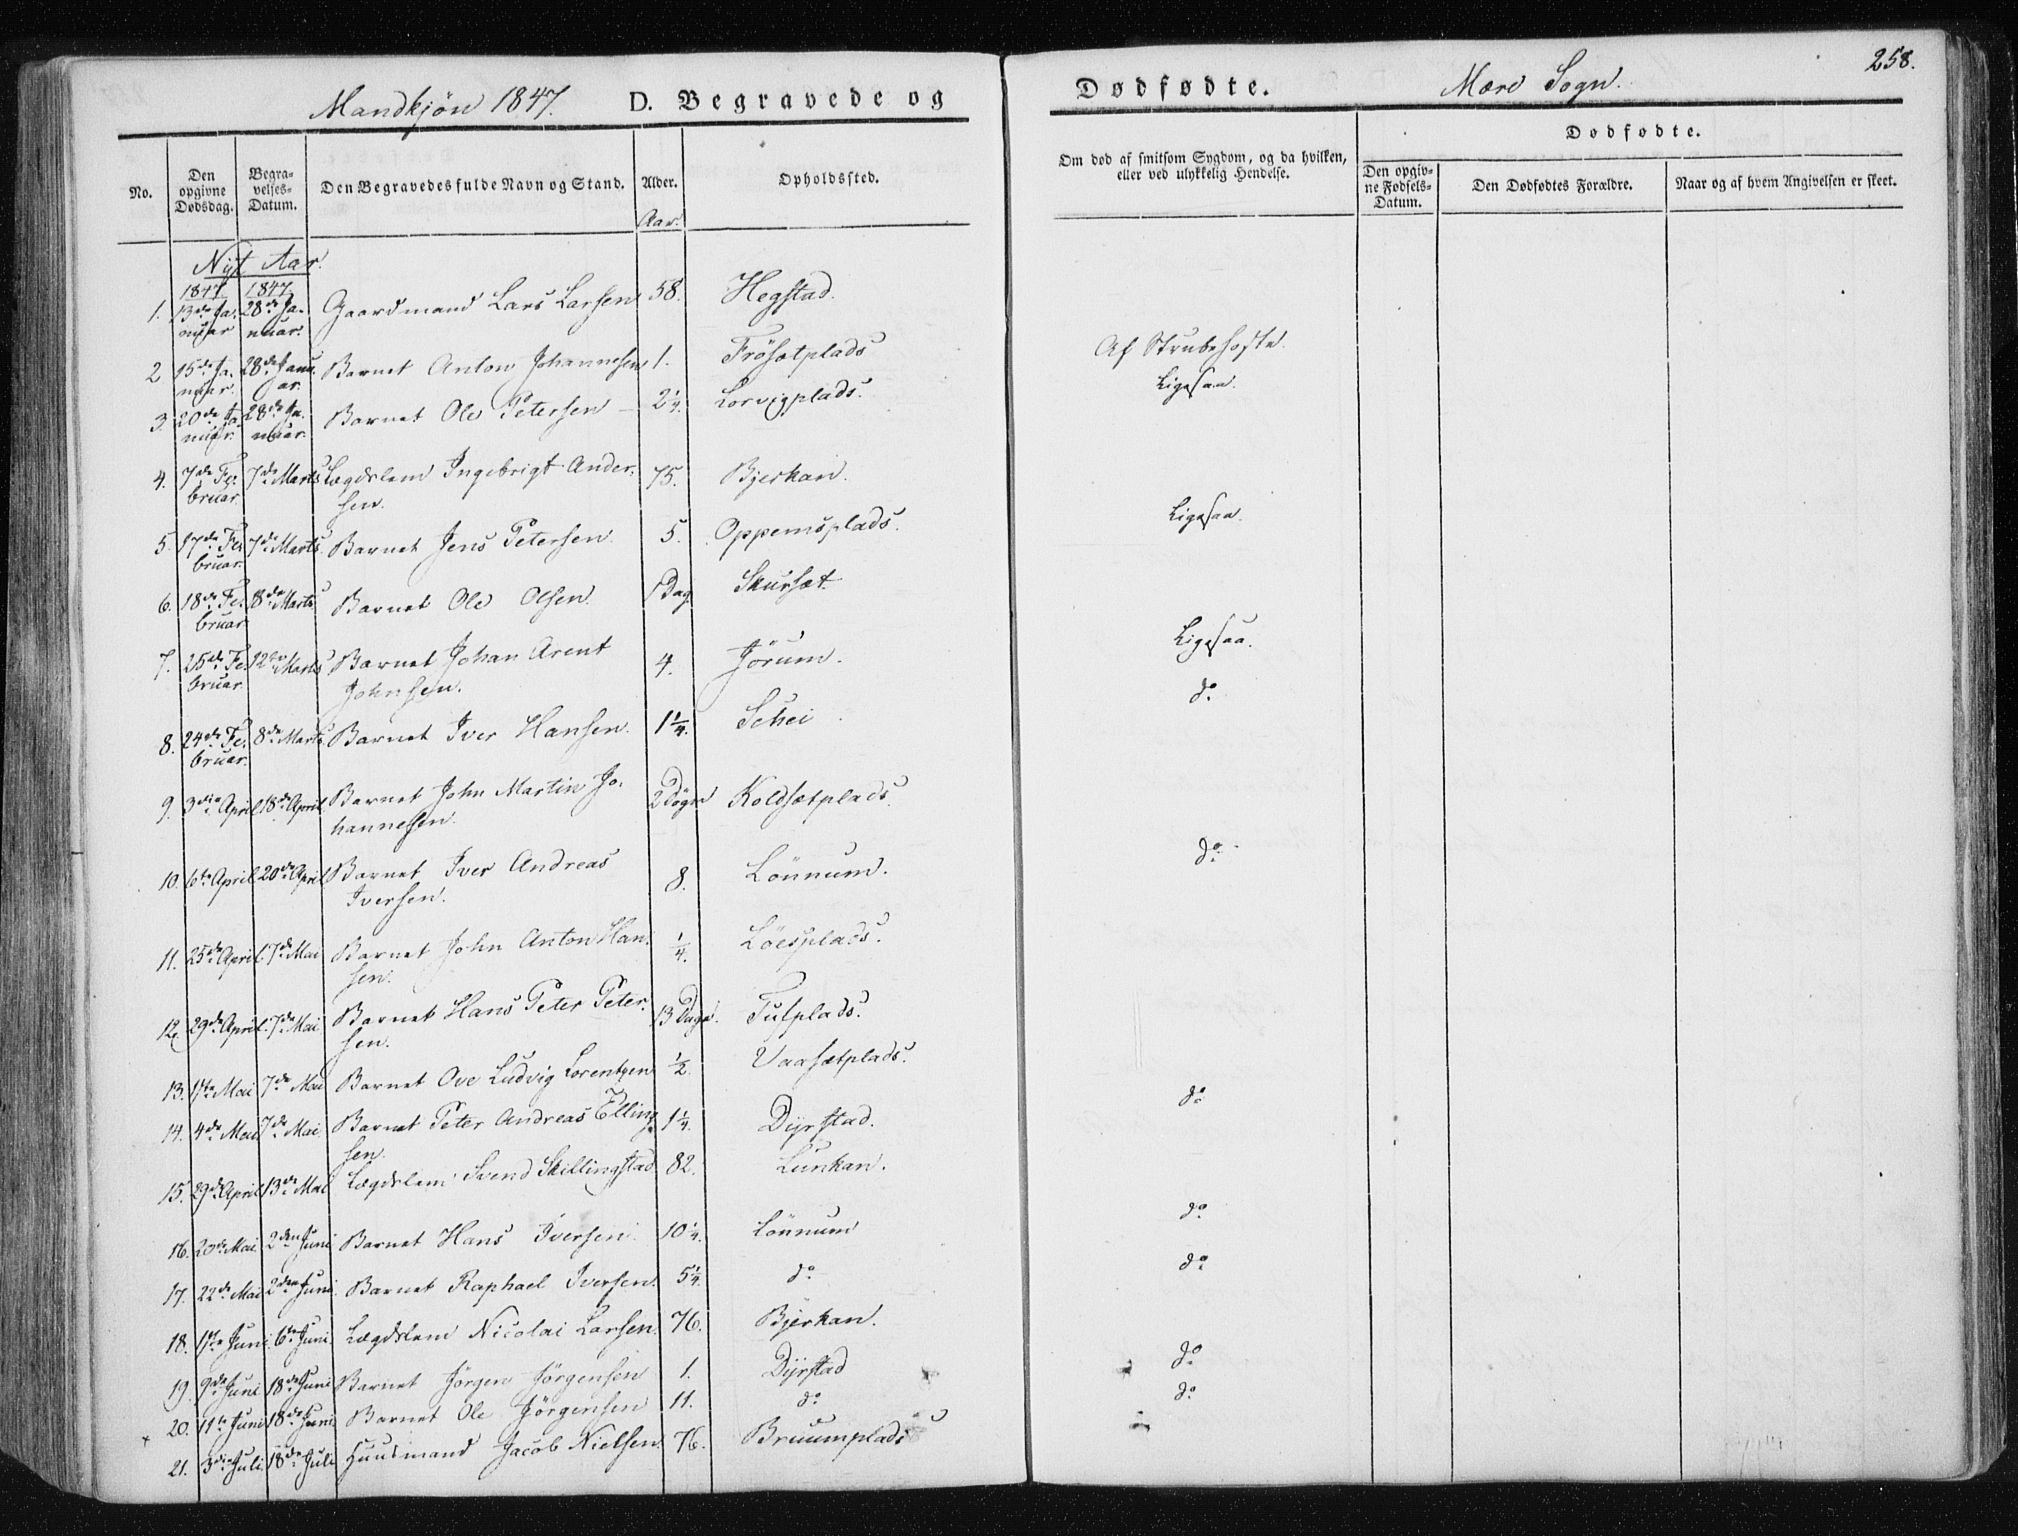 258.
Mandkjön 1847. D. Begravede og Dødfødte. Mære Sogn.
No.
Den opgivne Dødsdag.
Begravelses-Datum.
Den Begravedes fulde Navn og Stand.
Alder.
Aar.
Opholdssted.
Om død af smitsom Sygdom, og da hvilken, eller ved ulykkelig Hendelse.
Dødfødte.
Den opgivne Fødsels-Datum.
Den Dødfødtes Forældre.
Naar og af hvem Angivelsen er skeet.
Nyt Aar.
1847 1847
1. 13de Januar 28de Januar. Gaardmand Lars Larsen 58. Hegstad.
2 15de Januar. 28de Januar. Barnet Anton Johannesen 1. Frösetplads Af Strubehoste.
3. 20de Januar. 28de Januar. Barnet Ole Petersen 2 1/4. Lorvigplads. Ligesaa.
4. 7de Februar. 7de Marts Lægdslem Ingebrigt Andersen. 75. Bjerkan.
5. 17de Februar. 7de Marts. Barnet Jens Petersen. 5. Oppemsplads. Ligesaa.
6. 18de Februar 8de Marts Barnet Ole Olsen. 1 Dag Skursæt
7. 25de Februar 12te Marts Barnet Johan Arent Johnsen. 4. Jörum. Ligesaa.
8. 24de Februar. 8de Marts. Barnet Iver Hansen. 1 1/4. Schei do
9. 3die April 18de April. Barnet John Martin Johannesen. 2 Dögn Koldsætplads.
10. 6te April 20de April Barnet Iver Andreas Iversen. 8. Lönnum. do
11. 25de April. 17de Mai Barnet John Anton Hansen. 1/4. Löesplads.
12. 29de April. 7de Mai Barnet Hans Peter Petersen. 13 Dage. Tulplads.
13. 1ste Mai 7de Mai Barnet Ove Ludvig Lorentzen 1/2. Vaasætplads.
14. 4de Mai 7de Mai. Barnet Peter Andreas Ellingsen. 1 1/4. Dyrstad. do
15. 29de April 13de Mai Lægdslem Svend Skillingstad 82. Lunkan.
16. 20de Mai 2den Juni Barnet Hans Iversen. 10 1/4. Lönnum do
17. 22de Mai 2den Juni. Barnet Raphael Iversen. 5 1/4. do do
18. 1ste Juni 6te Juni. Lægdslem Nicolai Larsen. 76. Bjerkan.
19. 9de Juni 18de Juni Barnet Jörgen Jörgensen 1. Dyrstad do
20. 11te Juni 18de Juni. Barnet Ole Jörgensen 11. do do
21. 3die Juli. 18de Juli Huusmand Jacob Nielsen. 76. Bruumplads